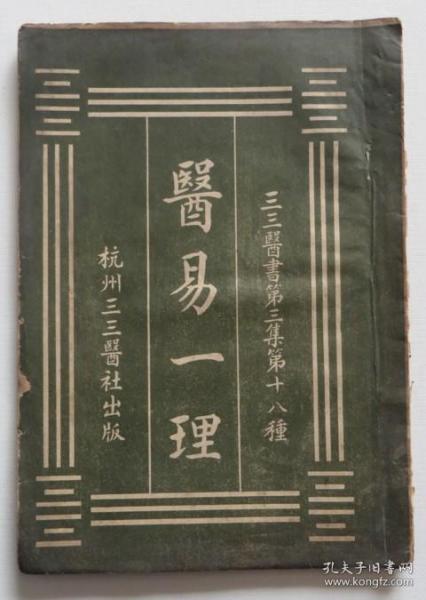 三三醫書第三集第十八種
醫易一理
杭州三三醫社出版
孔夫子旧书网
www.kongfz.com